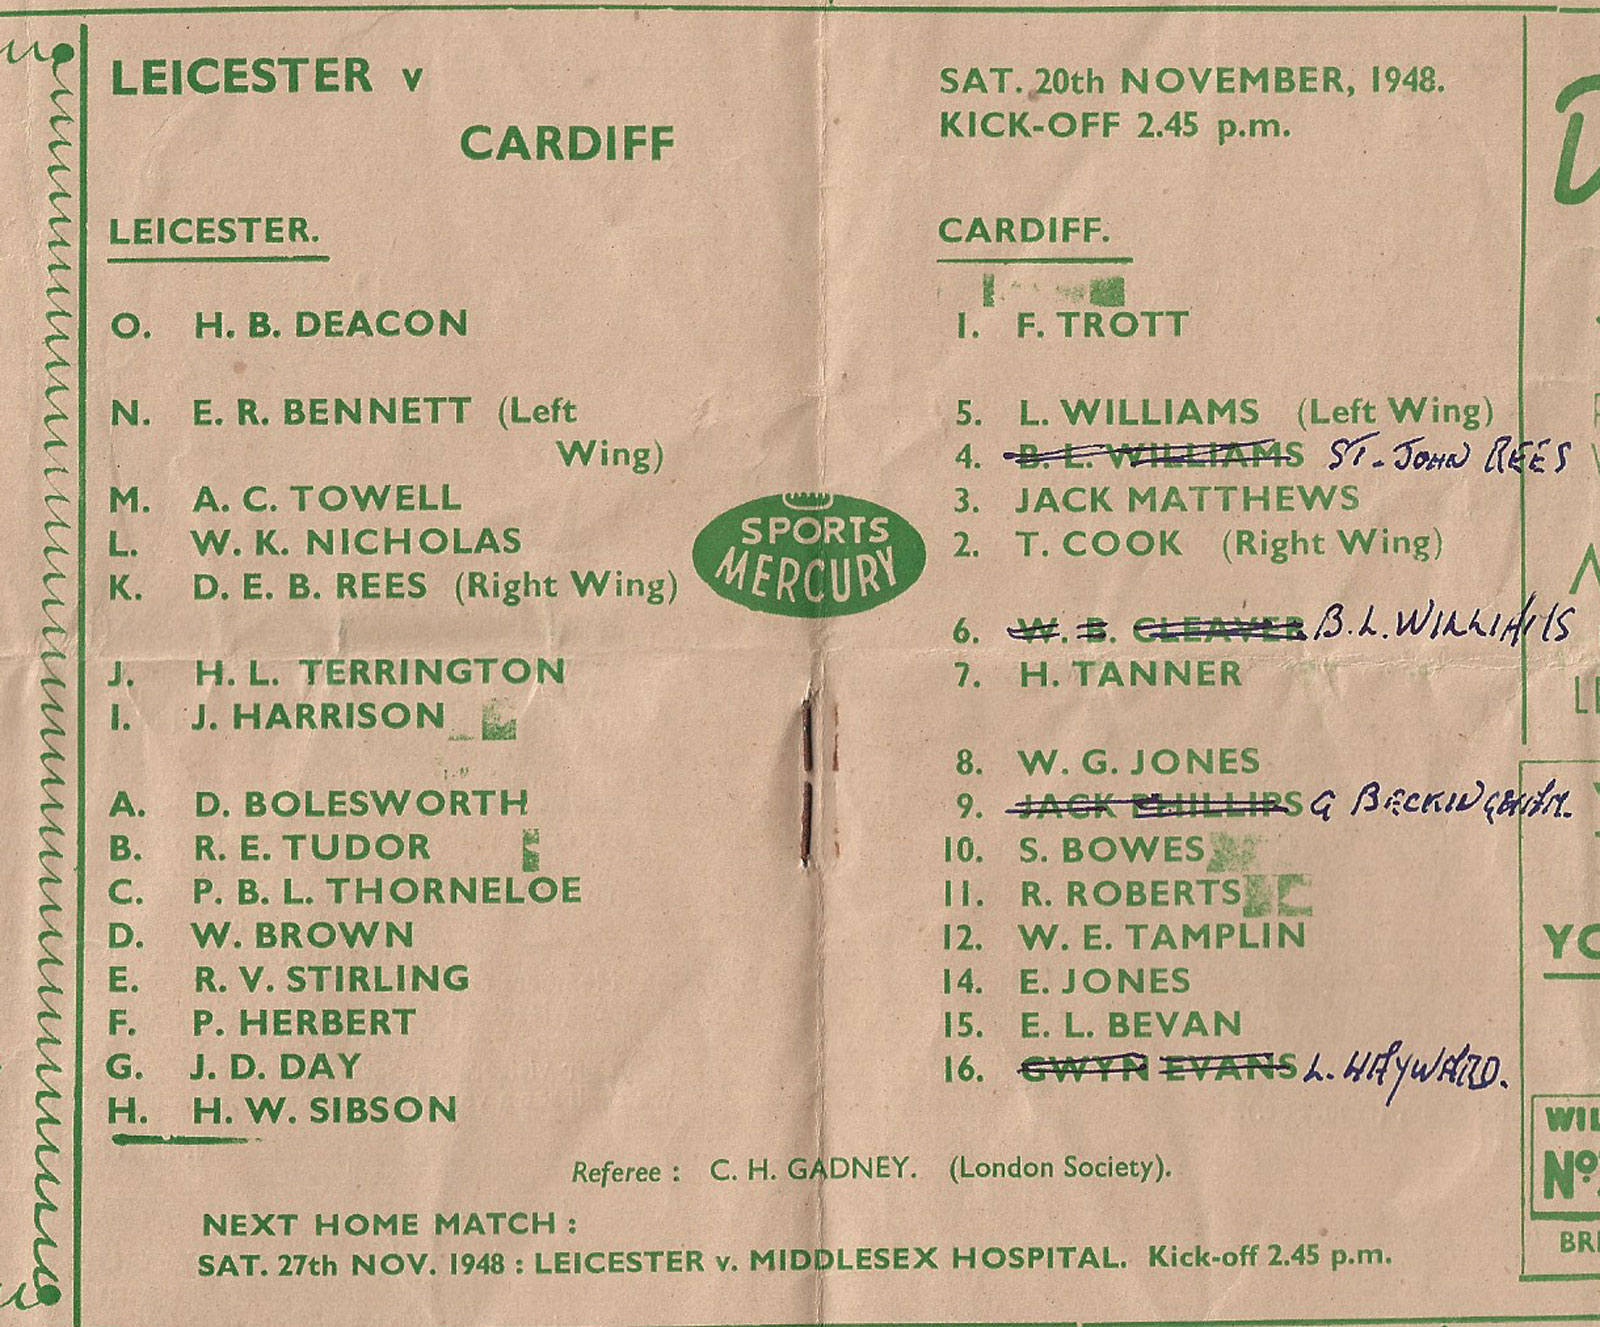 LEICESTER v
CARDIFF
SAT. 20th NOVEMBER, 1948.
KICK-OFF 2.45 p.m.
LEICESTER.
O. H. B. DEACON
N. E. R. BENNETT (Left
Wing)
M. A. C. TOWELL
L. W. K. NICHOLAS
K. D. E. B. REES (Right Wing)
J. H. L. TERRINGTON
I. J. HARRISON
A. D. BOLESWORTH
B. R. E. TUDOR
C. P. B. L. THORNELOE
D. W. BROWN
E. R. V. STIRLING
F. P. HERBERT
G. J. D. DAY
H. H. W. SIBSON
SPORTS
MERCURY
CARDIFF.
1. F. TROTT
5. L. WILLIAMS (Left Wing)
4. B. L. WILLIAMS ST. JOHN REES
3. JACK MATTHEWS
2. T. COOK (Right Wing)
6. W. B. CLEAVER B. L. WILLIAMS
7. H. TANNER
8. W. G. JONES
9. JACK PHILLIPS G BECKINGHAM.
10. S. BOWES
11. R. ROBERTS
12. W. E. TAMPLIN
14. E. JONES
15. E. L. BEVAN
16. GWYN EVANS L. HAYWARD.
Referee : C. H. GADNEY. (London Society).
NEXT HOME MATCH :
SAT. 27th NOV. 1948 : LEICESTER v. MIDDLESEX HOSPITAL. Kick-off 2.45 p.m.